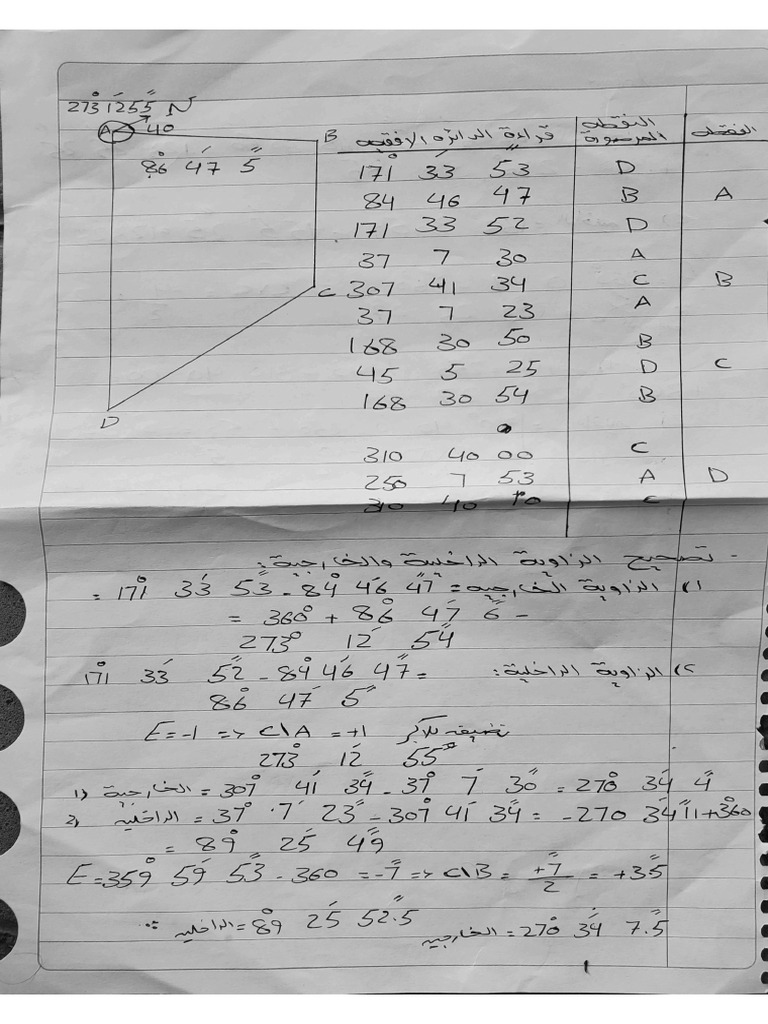 273° 12' 55" N
A 40 B
86° 47' 5"
C
D
قراءة الدائرة الافقيه | النقطه المرصودة | النقطه
171° 33' 53" D
84 46 47 B A
171 33 52 D
37 7 30 A
307 41 34 C B
37 7 23 A
168 30 50 B
45 5 25 D C
168 30 54 B
310 40 00 C
250 7 53 A D
310 40 10 C
- تصحيح الزاوية الداخلية والخارجية:
1) الزاوية الخارجيه = 171° 33' 53" - 84° 46' 47" =
= 360° + 86° 47' 6" -
273° 12' 54"
2) الزاوية الداخلية: = 171° 33' 52" - 84° 46' 47"
86° 47' 5"
E = -1 => C\A = +1 تضيفه للاكبر
273° 12' 55"
1) الخارجية = 307° 41' 34" - 37° 7' 30" = 270° 34' 4"
2) الداخليه = 37° 7' 23" - 307° 41' 34" = -270 34' 11" + 360°
= 89° 25' 49"
E = 359° 59' 53" - 360 = -7" => C\B = +7"/2 = +3.5"
∴ الداخليه = 89° 25' 52.5" الخارجيه = 270° 34' 7.5"